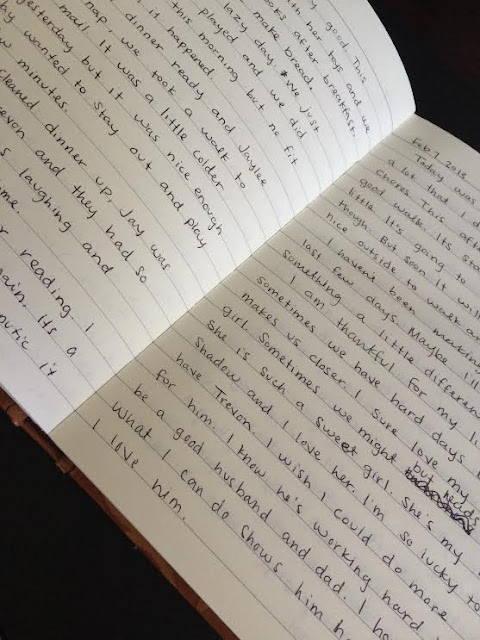 y good. This
ith her toys and we
ooks after breakfast.
make bread.
lazy day. We just
played and we did
this morning but no fit
it happened.
dinner ready and Jaylee
nap, we took a walk to
mail. It was a little colder
yesterday but it was nice enough
ay wanted to stay out and play
w minutes.
cleaned dinner up, Jay was
revon and they had so
s laughing and
ime.
r reading. I
ain. Its a
aputic it
Feb 7 2013
Today was
a lot that I d
chores this aft
good walk. Its sta
little. It's going to
though. But soon it will
nice outside to walk an
I haven't been
last few days. Maybe I'll
something a little differen
I am thankful for my li
sometimes we have hard days
makes us closer. I sure love my
girl. Sometimes we might but
She is such a sweet girl. She's my
Shadow and I love her. I'm so lucky to
have Trevon. I wish I could do more
for him. I know he's working hard
be a good husband and dad. I ho
What I can do shows him h
I love him.